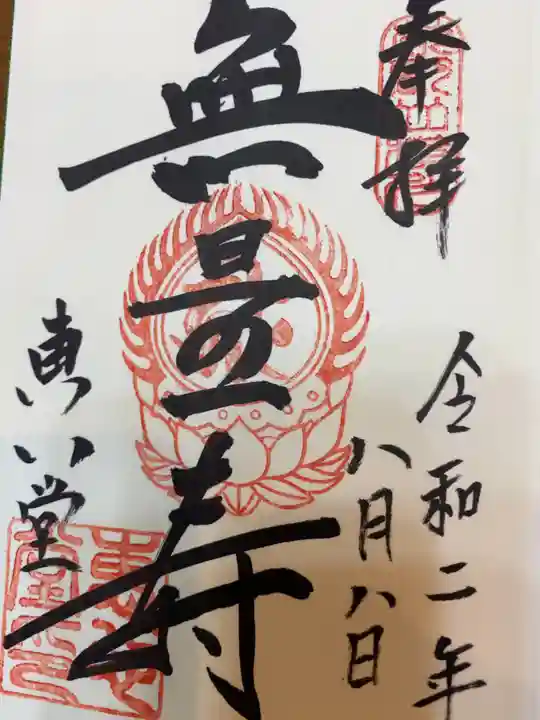 奉拝
令和二年
八月八日
無量寿
恵心堂